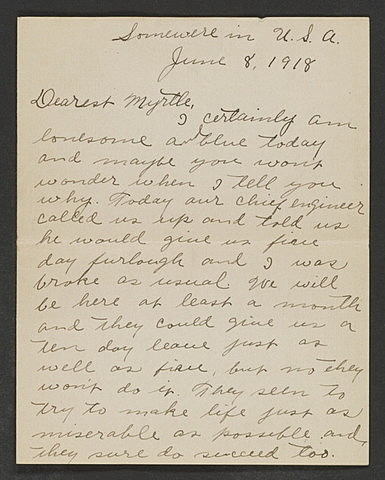 Somewere in U.S.A.
June 8, 1918
Dearest Myrtle,
I certainly am
lonesome an blue today
and maybe you wont
wonder when I tell you
why. Today our chief engineer
called us up and told us
he would give us five
day furlough and I was
broke as usual. We will
be here at least a month
and they could give us a
ten day leave just as
well as five, but no they
wont do it. They seen to
try to make life just as
miserable as possible and
they sure do succeed too.